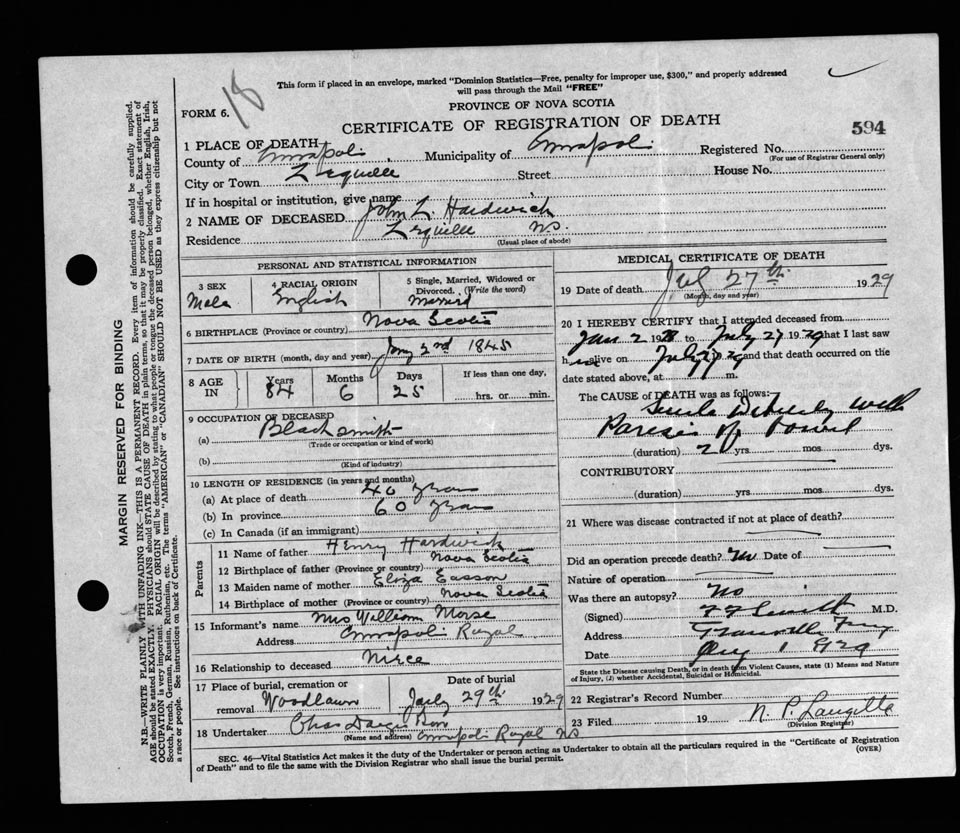 This form if placed in an envelope, marked "Dominion Statistics—Free, penalty for improper use, $300," and properly addressed
will pass through the Mail "FREE"
18
FORM 6.
PROVINCE OF NOVA SCOTIA
CERTIFICATE OF REGISTRATION OF DEATH
594
1 PLACE OF DEATH
County of Annapolis Municipality of Annapolis Registered No.
(For use of Registrar General only)
City or Town Lequille Street House No.
If in hospital or institution, give name
2 NAME OF DECEASED John L. Hardwick
Residence Lequille NS.
(Usual place of abode)
PERSONAL AND STATISTICAL INFORMATION
3 SEX 4 RACIAL ORIGIN 5 Single, Married, Widowed or
Divorced. (Write the word)
Male English Married
6 BIRTHPLACE (Province or country) Nova Scotia
7 DATE OF BIRTH (month, day and year) Jany 2nd 1845
8 AGE IN Years Months Days If less than one day,
84 6 25 hrs. or min.
9 OCCUPATION OF DECEASED
(a) Blacksmith
(Trade or occupation or kind of work)
(b)
(Kind of industry)
10 LENGTH OF RESIDENCE (in years and months)
(a) At place of death 40 years
(b) In province 60 years
(c) In Canada (if an immigrant)
Parents
11 Name of father Henry Hardwick
12 Birthplace of father (Province or country) Nova Scotia
13 Maiden name of mother Eliza Easson
14 Birthplace of mother (Province or country) Nova Scotia
15 Informant's name Mrs William Morse
Address Annapolis Royal
16 Relationship to deceased Niece
17 Place of burial, cremation or Date of burial
removal Woodlawn July 29th 1929
18 Undertaker Chas
(Name and address) Annapolis Royal NS
MEDICAL CERTIFICATE OF DEATH
19 Date of death July 27th 1929
(Month, day and year)
20 I HEREBY CERTIFY that I attended deceased from
Jan 2 19 to July 27 1929 that I last saw
him alive on July 27 29 and that death occurred on the
date stated above, at m.
The CAUSE of DEATH was as follows:
Senile Debility with
Paresis of bowel
(duration) 2 yrs. mos dys.
CONTRIBUTORY
(duration) yrs mos dys.
21 Where was disease contracted if not at place of death?
Did an operation precede death? No Date of
Nature of operation
Was there an autopsy? No
(Signed) Smith M.D.
Address Granville Ferry
Date Aug 1 1929
State the Disease causing Death, or in death from Violent Causes, state (1) Means and Nature
of Injury, (2) whether Accidental, Suicidal or Homicidal.
22 Registrar's Record Number
23 Filed 19 N. P. Langille
(Division Registrar)
SEC. 46—Vital Statistics Act makes it the duty of the Undertaker or person acting as Undertaker to obtain all the particulars required in the "Certificate of Registration
of Death" and to file the same with the Division Registrar who shall issue the burial permit.
(OVER)
MARGIN RESERVED FOR BINDING
N.B.—WRITE PLAINLY WITH UNFADING INK—THIS IS A PERMANENT RECORD. Every item of information should be carefully supplied.
AGE should be stated EXACTLY. PHYSICIANS should STATE CAUSE OF DEATH in plain terms, so that it may be properly classified. Exact statement of
OCCUPATION is very important. RACIAL ORIGIN will be described by stating to what people or tongue the deceased person belonged, whether English, Irish,
Scotch, French, German, Russian, Ruthenian, etc. The terms "AMERICAN" or "CANADIAN" SHOULD NOT BE USED as they express citizenship but not
a race or people. See instructions on back of Certificate.